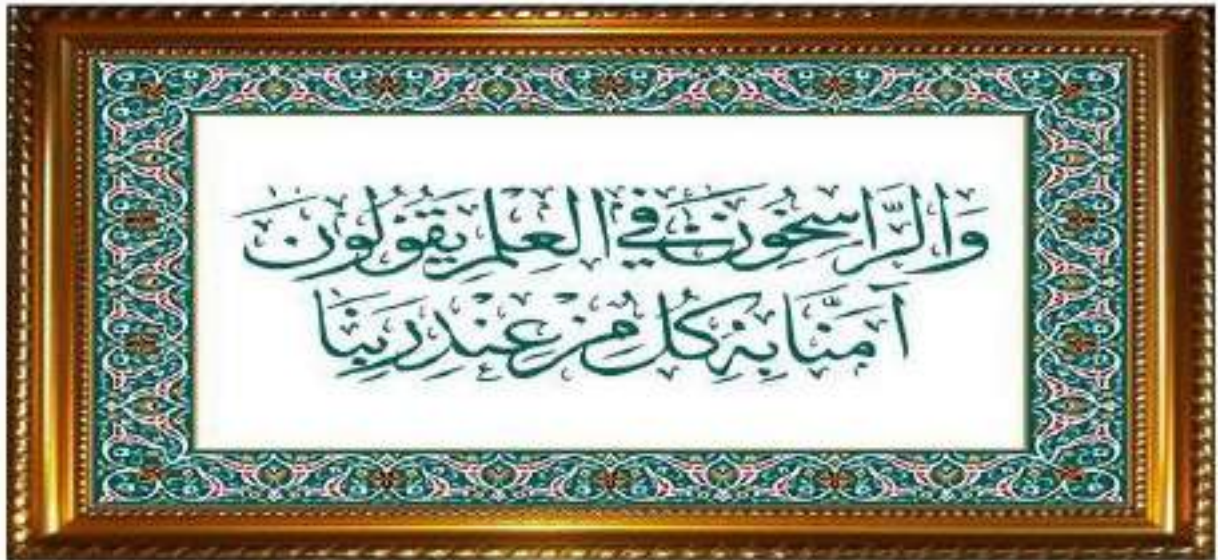 وَالرَّاسِخُونَ فِي الْعِلْمِ يَقُولُونَ
آمَنَّا بِهِ كُلٌّ مِنْ عِنْدِ رَبِّنَا